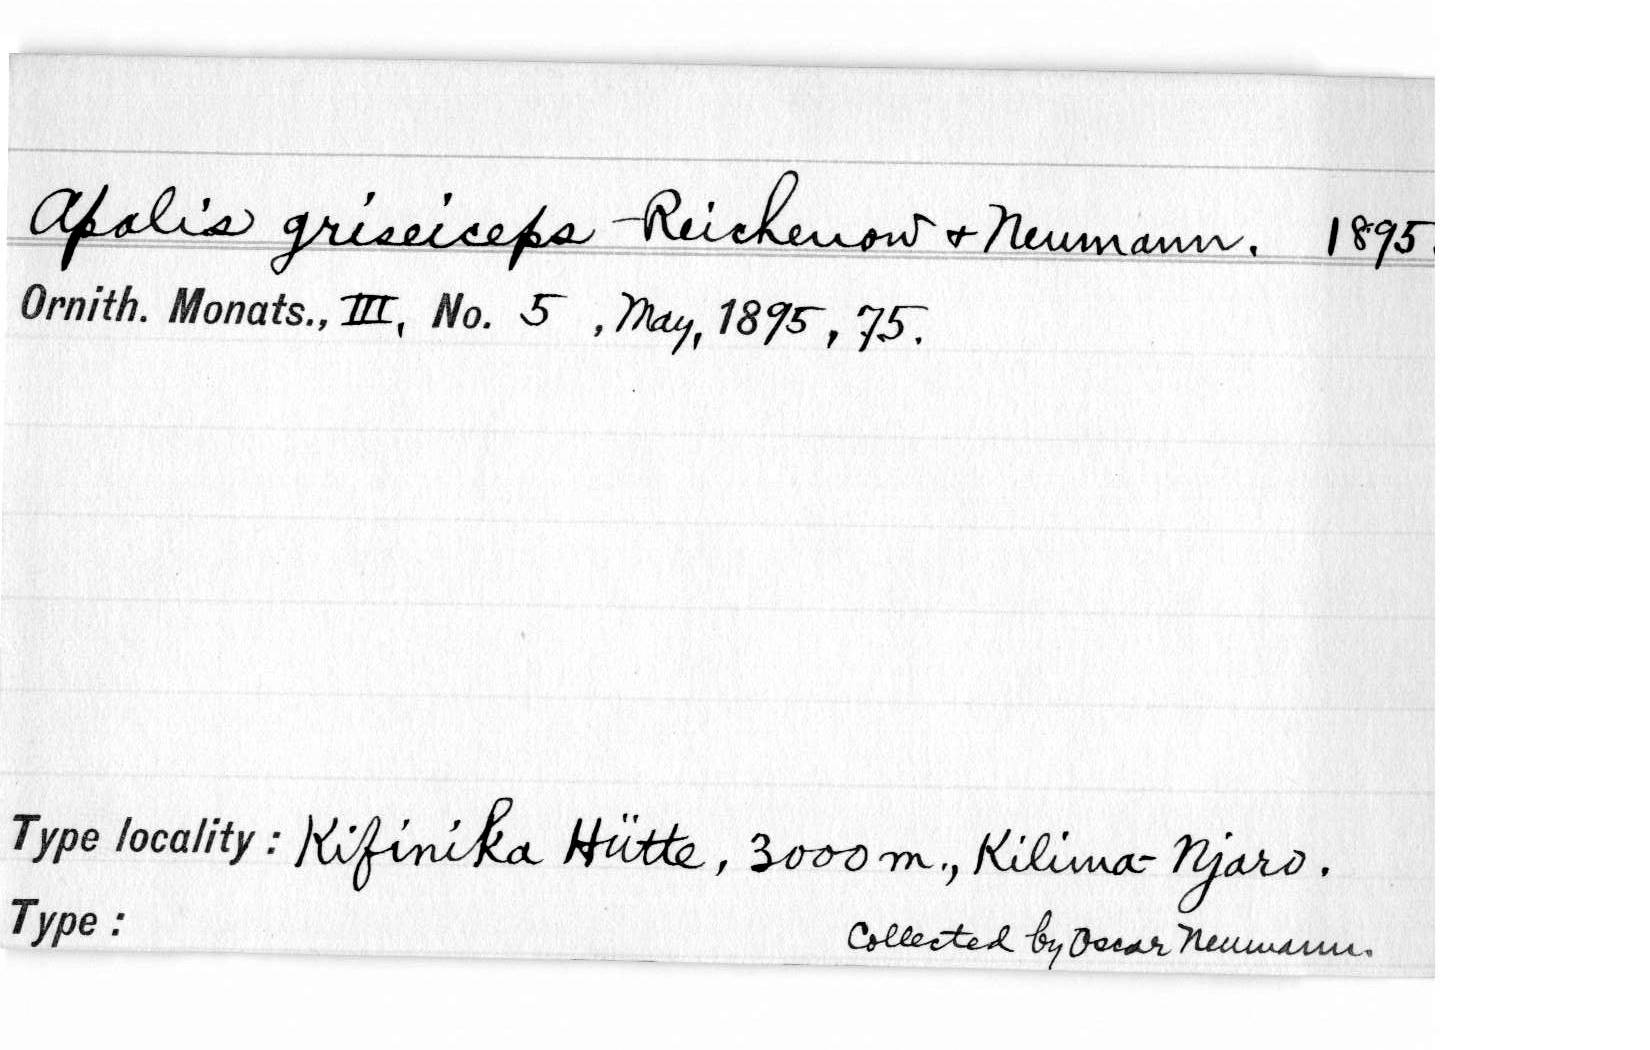 Apalis griseiceps Reichenow + Neumann. 1895.
Ornith. Monats., III, No. 5, May, 1895, 75.
Type locality: Kifinika Hütte, 3000 m., Kilima-Njaro.
Type: Collected by Oscar Neumann.